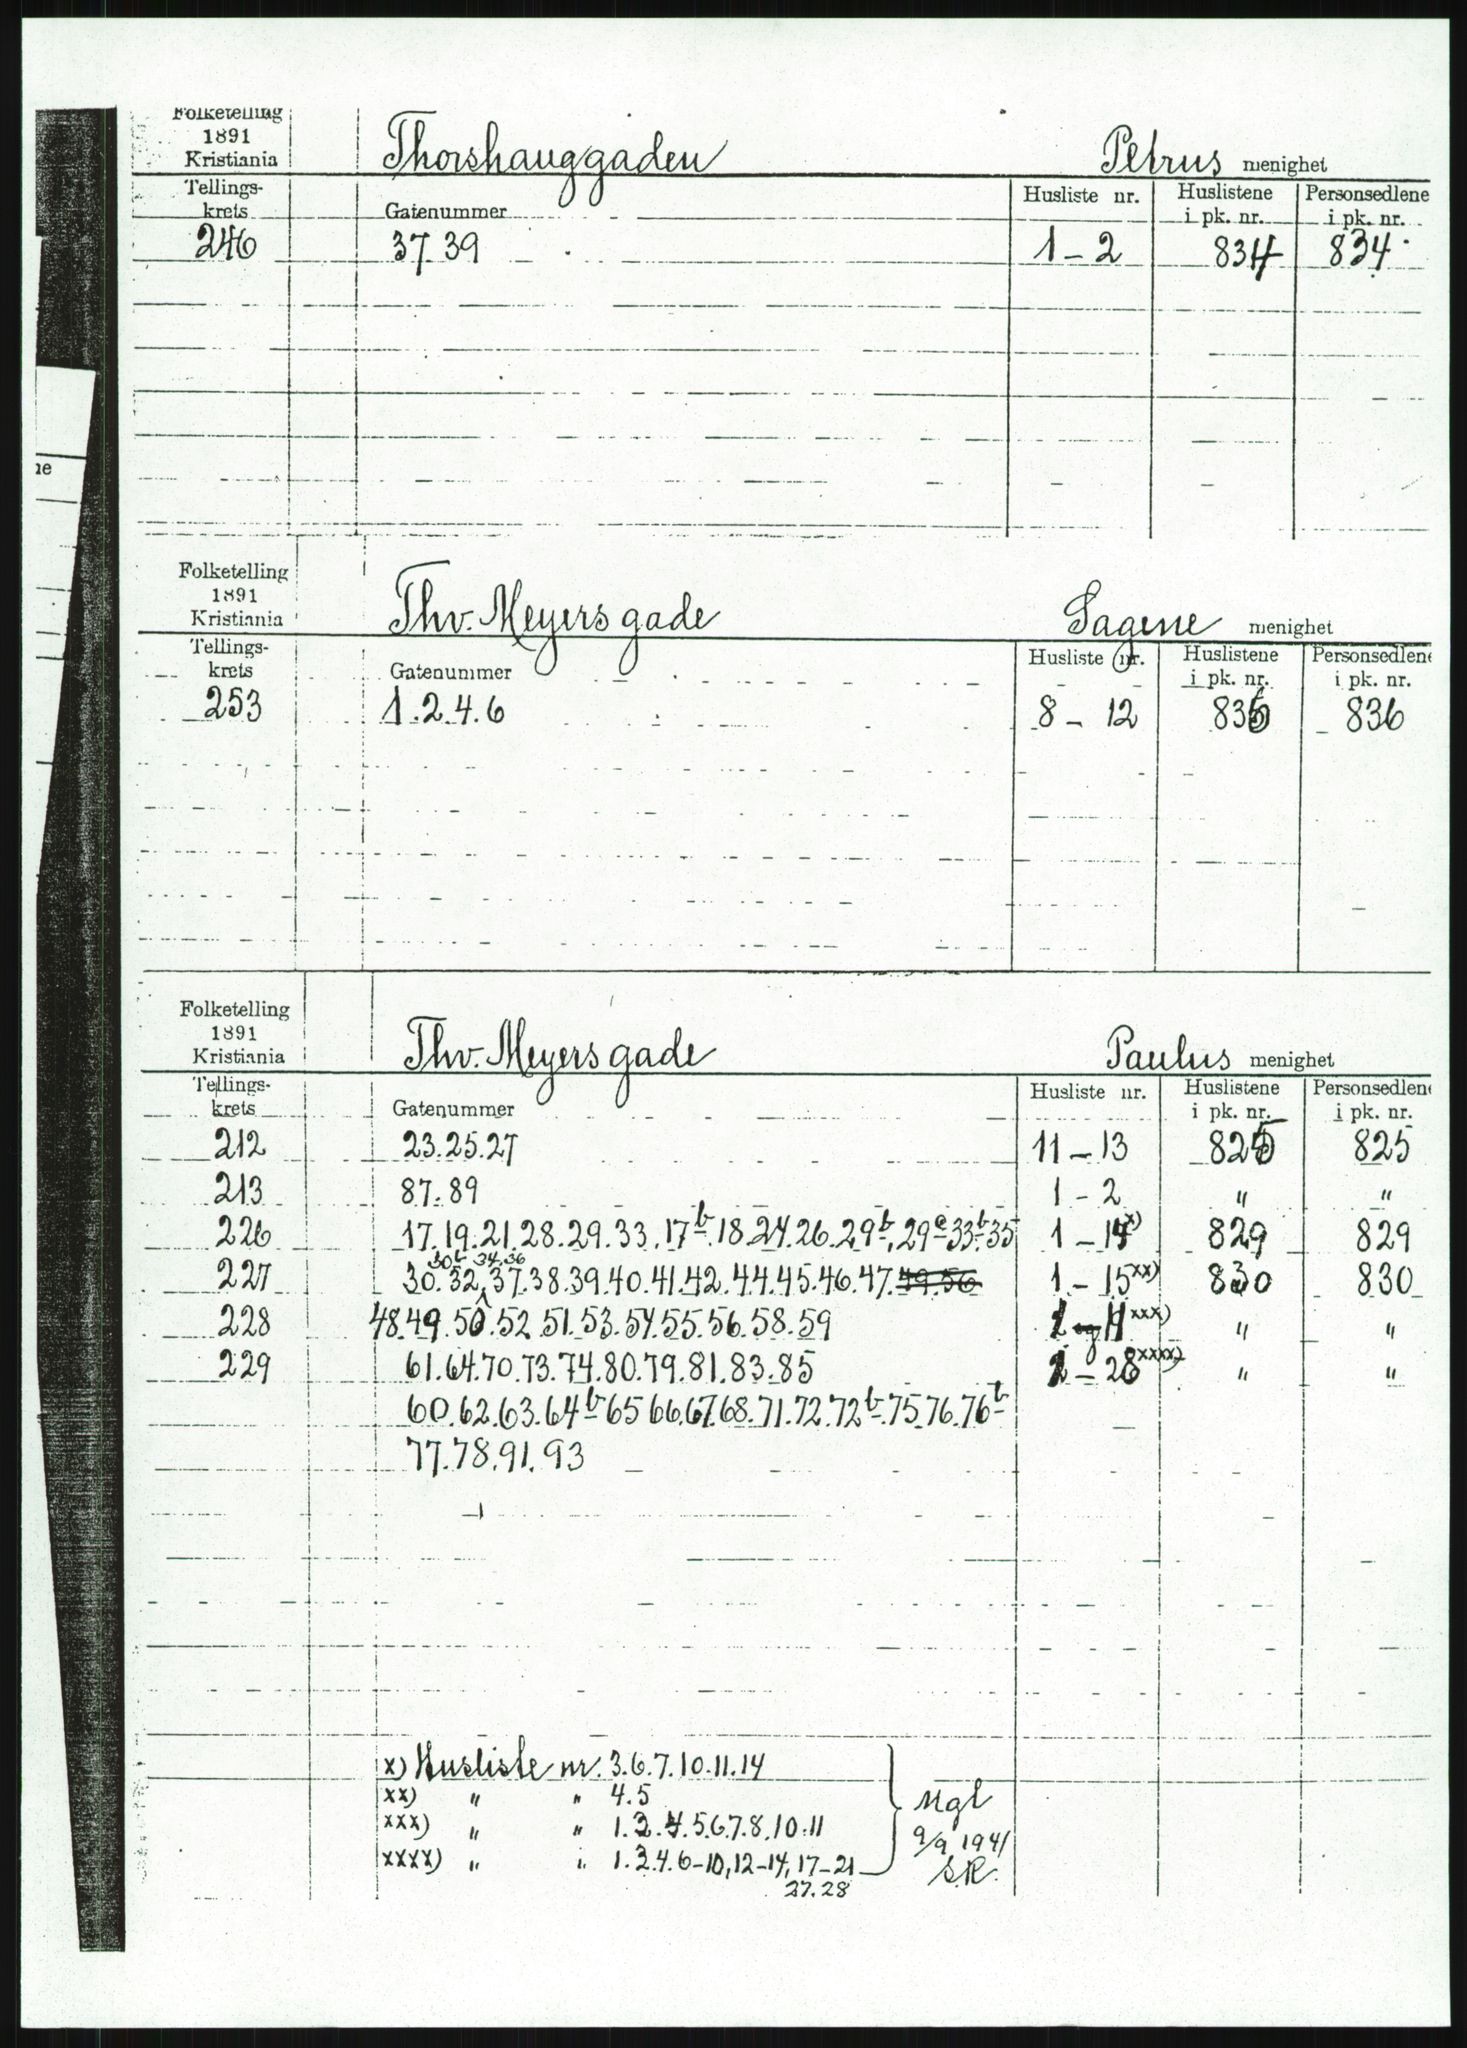 Folketelling
1891
Kristiania
Thorshauggaden
Petrus menighet
Tellings-
krets
Gatenummer
Husliste nr.
Huslistene
i pk. nr.
Personsedlene
i pk. nr.
246 37.39 1-2 834 834
ne
Folketelling
1891
Kristiania
Thv. Meyers gade
Sagene menighet
Tellings-
krets
Gatenummer
Husliste nr.
Huslistene
i pk. nr.
Personsedlene
i pk. nr.
253 1.2.4.6 8-12 836
Folketelling
1891
Kristiania
Thv. Meyers gade
Paulus menighet
Tellings-
krets
Gatenummer
Husliste nr.
Huslistene
i pk. nr.
Personsedlene
i pk. nr.
212 23.25.27 11-13 825 825
213 87.89 1-2 " "
226 17.19.21.28.29.33.17b.18.24.26.29b.29c.33b.35 1-14x) 829 829
30b 34.36
227 30.32.37.38.39.40.41.42.44.45.46.47.49.56 1-15xx) 830 830
228 48.49.50.52.51.53.54.55.56.58.59 xxx) " "
229 61.64.70.73.74.80.79.81.83.85 -28xxxx) " "
60.62.63.64b.65.66.67.68.71.72.72b.75.76.76b
77.78.91.93
x) Husliste nr. 3.6.7.10.11.14
xx) " " 4.5
xxx) " " 1.3.4.5.6.7.8.10.11
xxxx) " " 1.2.4.6-10,12-14,17-21
27.28
Mgl
9/9 1941
S.R.